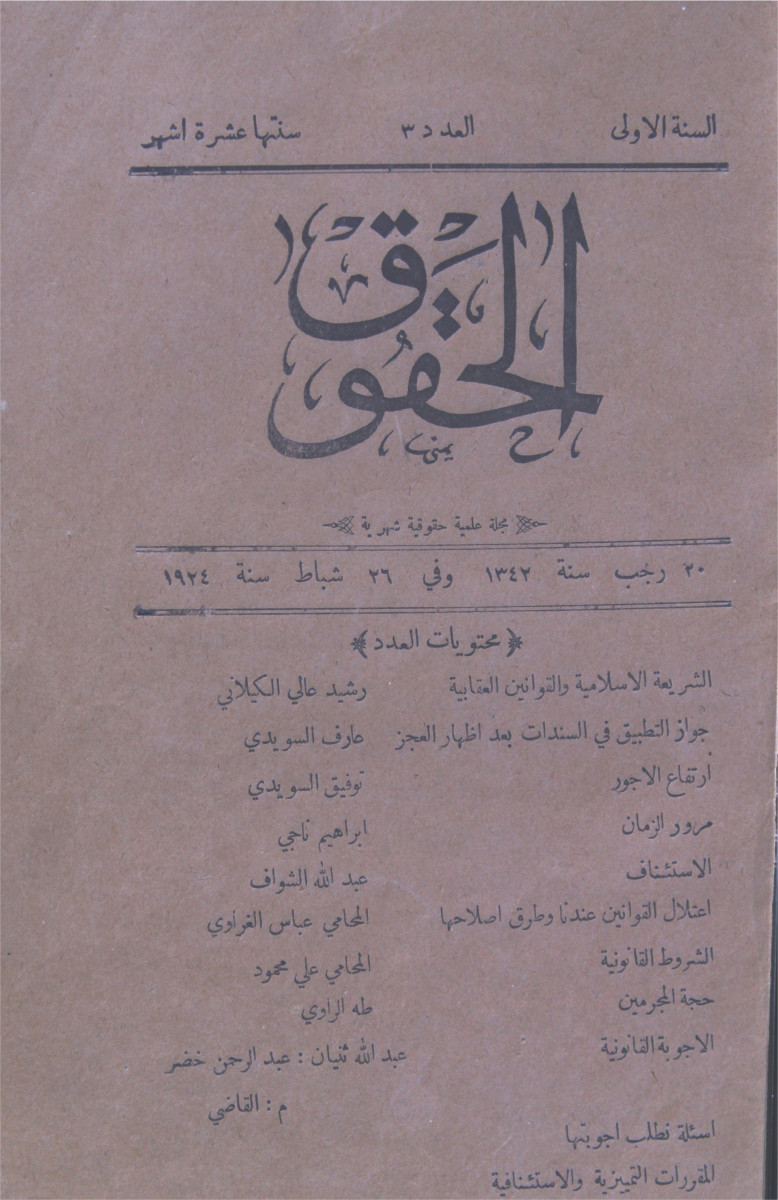 السنة الاولى العدد ٣ سنتها عشرة اشهر
الحقوق
يمنى
مجلة علمية حقوقية شهرية
٢٠ رجب سنة ١٣٤٢ وفي ٢٦ شباط سنة ١٩٢٤
محتويات العدد
الشريعة الاسلامية والقوانين العقابية رشيد عالي الكيلاني
جواز التطبيق في السندات بعد اظهار العجز عارف السويدي
ارتفاع الاجور توفيق السويدي
مرور الزمان ابراهيم ناجي
الاستئناف عبد الله الشواف
اعتلال القوانين عندنا وطرق اصلاحها المحامي عباس الغزاوي
الشروط القانونية المحامي علي محمود
حجة المجرمين طه الراوي
الاجوبة القانونية عبد الله ثنيان : عبد الرحمن خضر
م : القاضي
اسئلة نطلب اجوبتها
المقررات التمييزية والاستئنافية